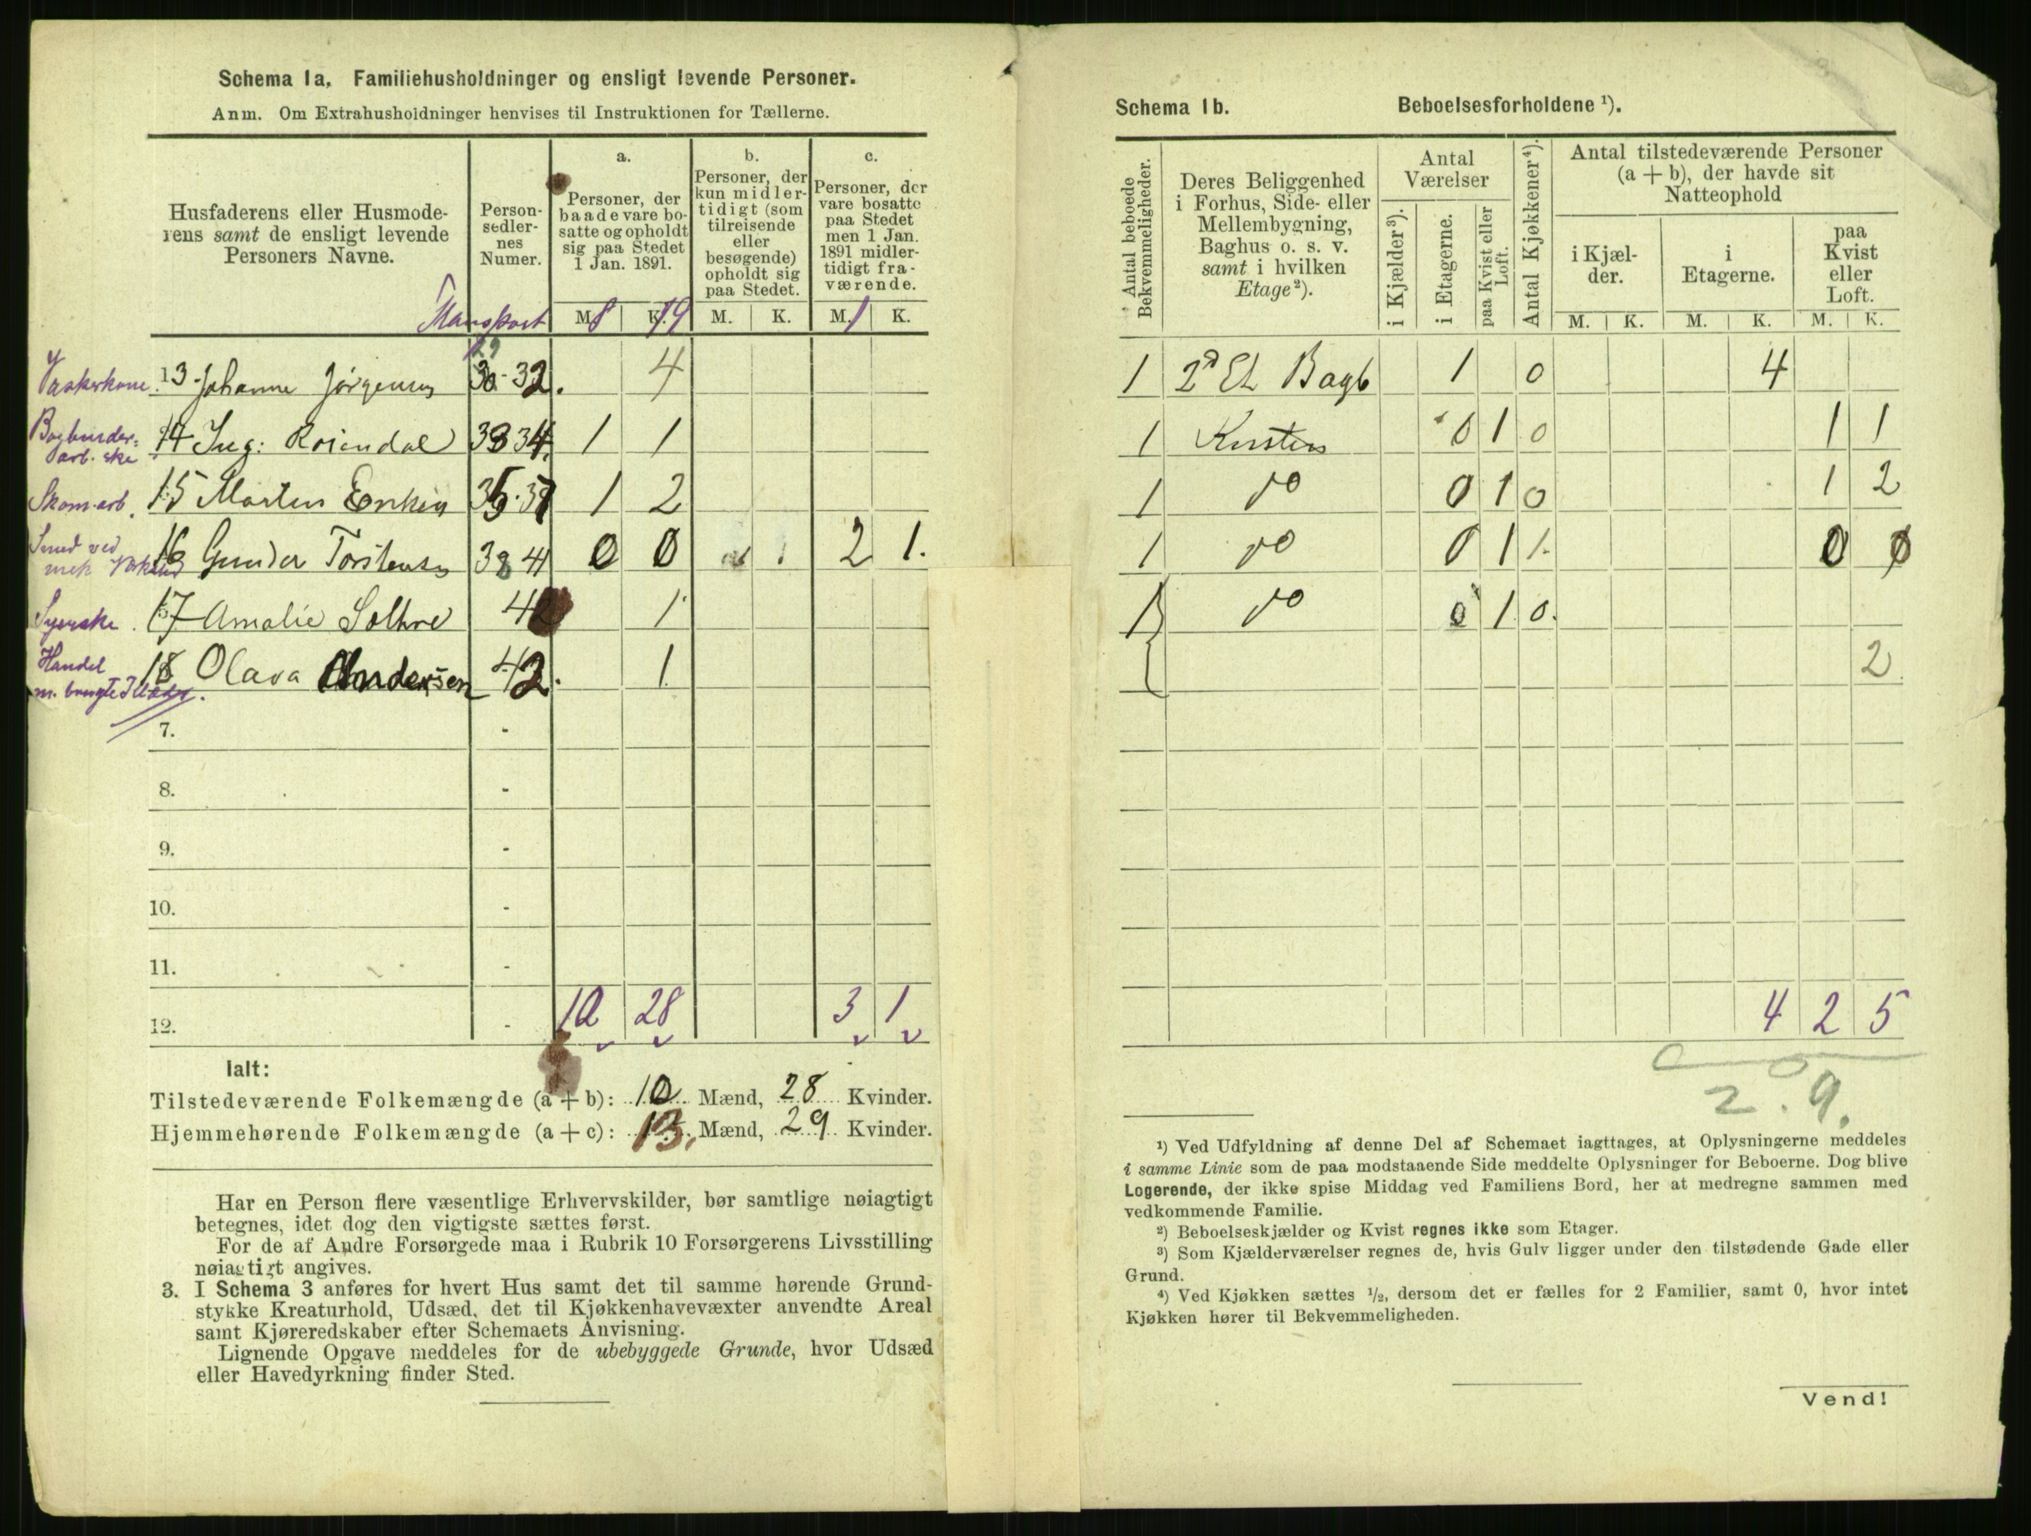 Schema 1a. Familiehusholdninger og ensligt levende Personer.
Anm. Om Extrahusholdninger henvises til Instruktionen for Tællerne.
Husfaderens eller Husmode-
rens samt de ensligt levende
Personers Navne.
Person-
sedler-
nes
Numer.
a.
Personer, der
baade vare bo-
satte og opholdt
sig paa Stedet
1 Jan. 1891.
b.
Personer, der
kun midler-
tidigt (som
tilreisende
eller
besøgende)
opholdt sig
paa Stedet.
c.
Personer, der
vare bosatte
paa Stedet
men 1 Jan.
1891 midler-
tidigt fra-
værende.
M. K. M. K. M. K.
Transport 8 19 1
Vaskerkone 13 Johanne Jørgensen 29 30-32. 4
Bogbinder-
arb. ske 14 Ing: Rosendal 33 34. 1 1
Skom. arb. 15 Morten Eriksen 35-37 1 2
Smed ved
mek Værksted 16 Gunder Torstensen 38 41 0 0 2 1.
Syerske. 17 Amalie Solhre 42 1
Handel
m. brugte Klæder. 18 Olava Andersen 42. 1
7. -
8. -
9. -
10. -
11. -
12. - 10 28 3 1
Ialt:
Tilstedeværende Folkemængde (a + b): 10 Mænd, 28 Kvinder.
Hjemmehørende Folkemængde (a + c): 13. Mænd, 29 Kvinder.
Har en Person flere væsentlige Erhvervskilder, bør samtlige nøiagtigt
betegnes, idet dog den vigtigste sættes først.
For de af Andre Forsørgede maa i Rubrik 10 Forsørgerens Livsstilling
nøiagtigt angives.
3. I Schema 3 anføres for hvert Hus samt det til samme hørende Grund-
stykke Kreaturhold, Udsæd, det til Kjøkkenhavevæxter anvendte Areal
samt Kjøreredskaber efter Schemaets Anvisning.
Lignende Opgave meddeles for de ubebyggede Grunde, hvor Udsæd
eller Havedyrkning finder Sted.
Schema 1b. Beboelsesforholdene ¹).
Antal beboede
Bekvemmeligheder.
Deres Beliggenhed
i Forhus, Side- eller
Mellembygning,
Baghus o. s. v.
samt i hvilken
Etage²).
Antal
Værelser
i Kjælder³).
i Etagerne.
paa Kvist eller
Loft.
Antal Kjøkkener⁴).
Antal tilstedeværende Personer
(a + b), der havde sit
Natteophold
i Kjæl-
der.
i
Etagerne.
paa
Kvist
eller
Loft.
M. K. M. K. M. K.
1 2d Et Bagb 1 0 4
1 Kvisten 0 1 0 1 1
1 do 0 1 0 1 2
1 do 0 1 1. 0 0
1 do 0 1. 0.
2
4 2 5
2. 9.
¹) Ved Udfyldning af denne Del af Schemaet iagttages, at Oplysningerne meddeles
i samme Linie som de paa modstaaende Side meddelte Oplysninger for Beboerne. Dog blive
Logerende, der ikke spise Middag ved Familiens Bord, her at medregne sammen med
vedkommende Familie.
²) Beboelseskjælder og Kvist regnes ikke som Etager.
³) Som Kjælderværelser regnes de, hvis Gulv ligger under den tilstødende Gade eller
Grund.
⁴) Ved Kjøkken sættes ½, dersom det er fælles for 2 Familier, samt 0, hvor intet
Kjøkken hører til Bekvemmeligheden.
Vend!